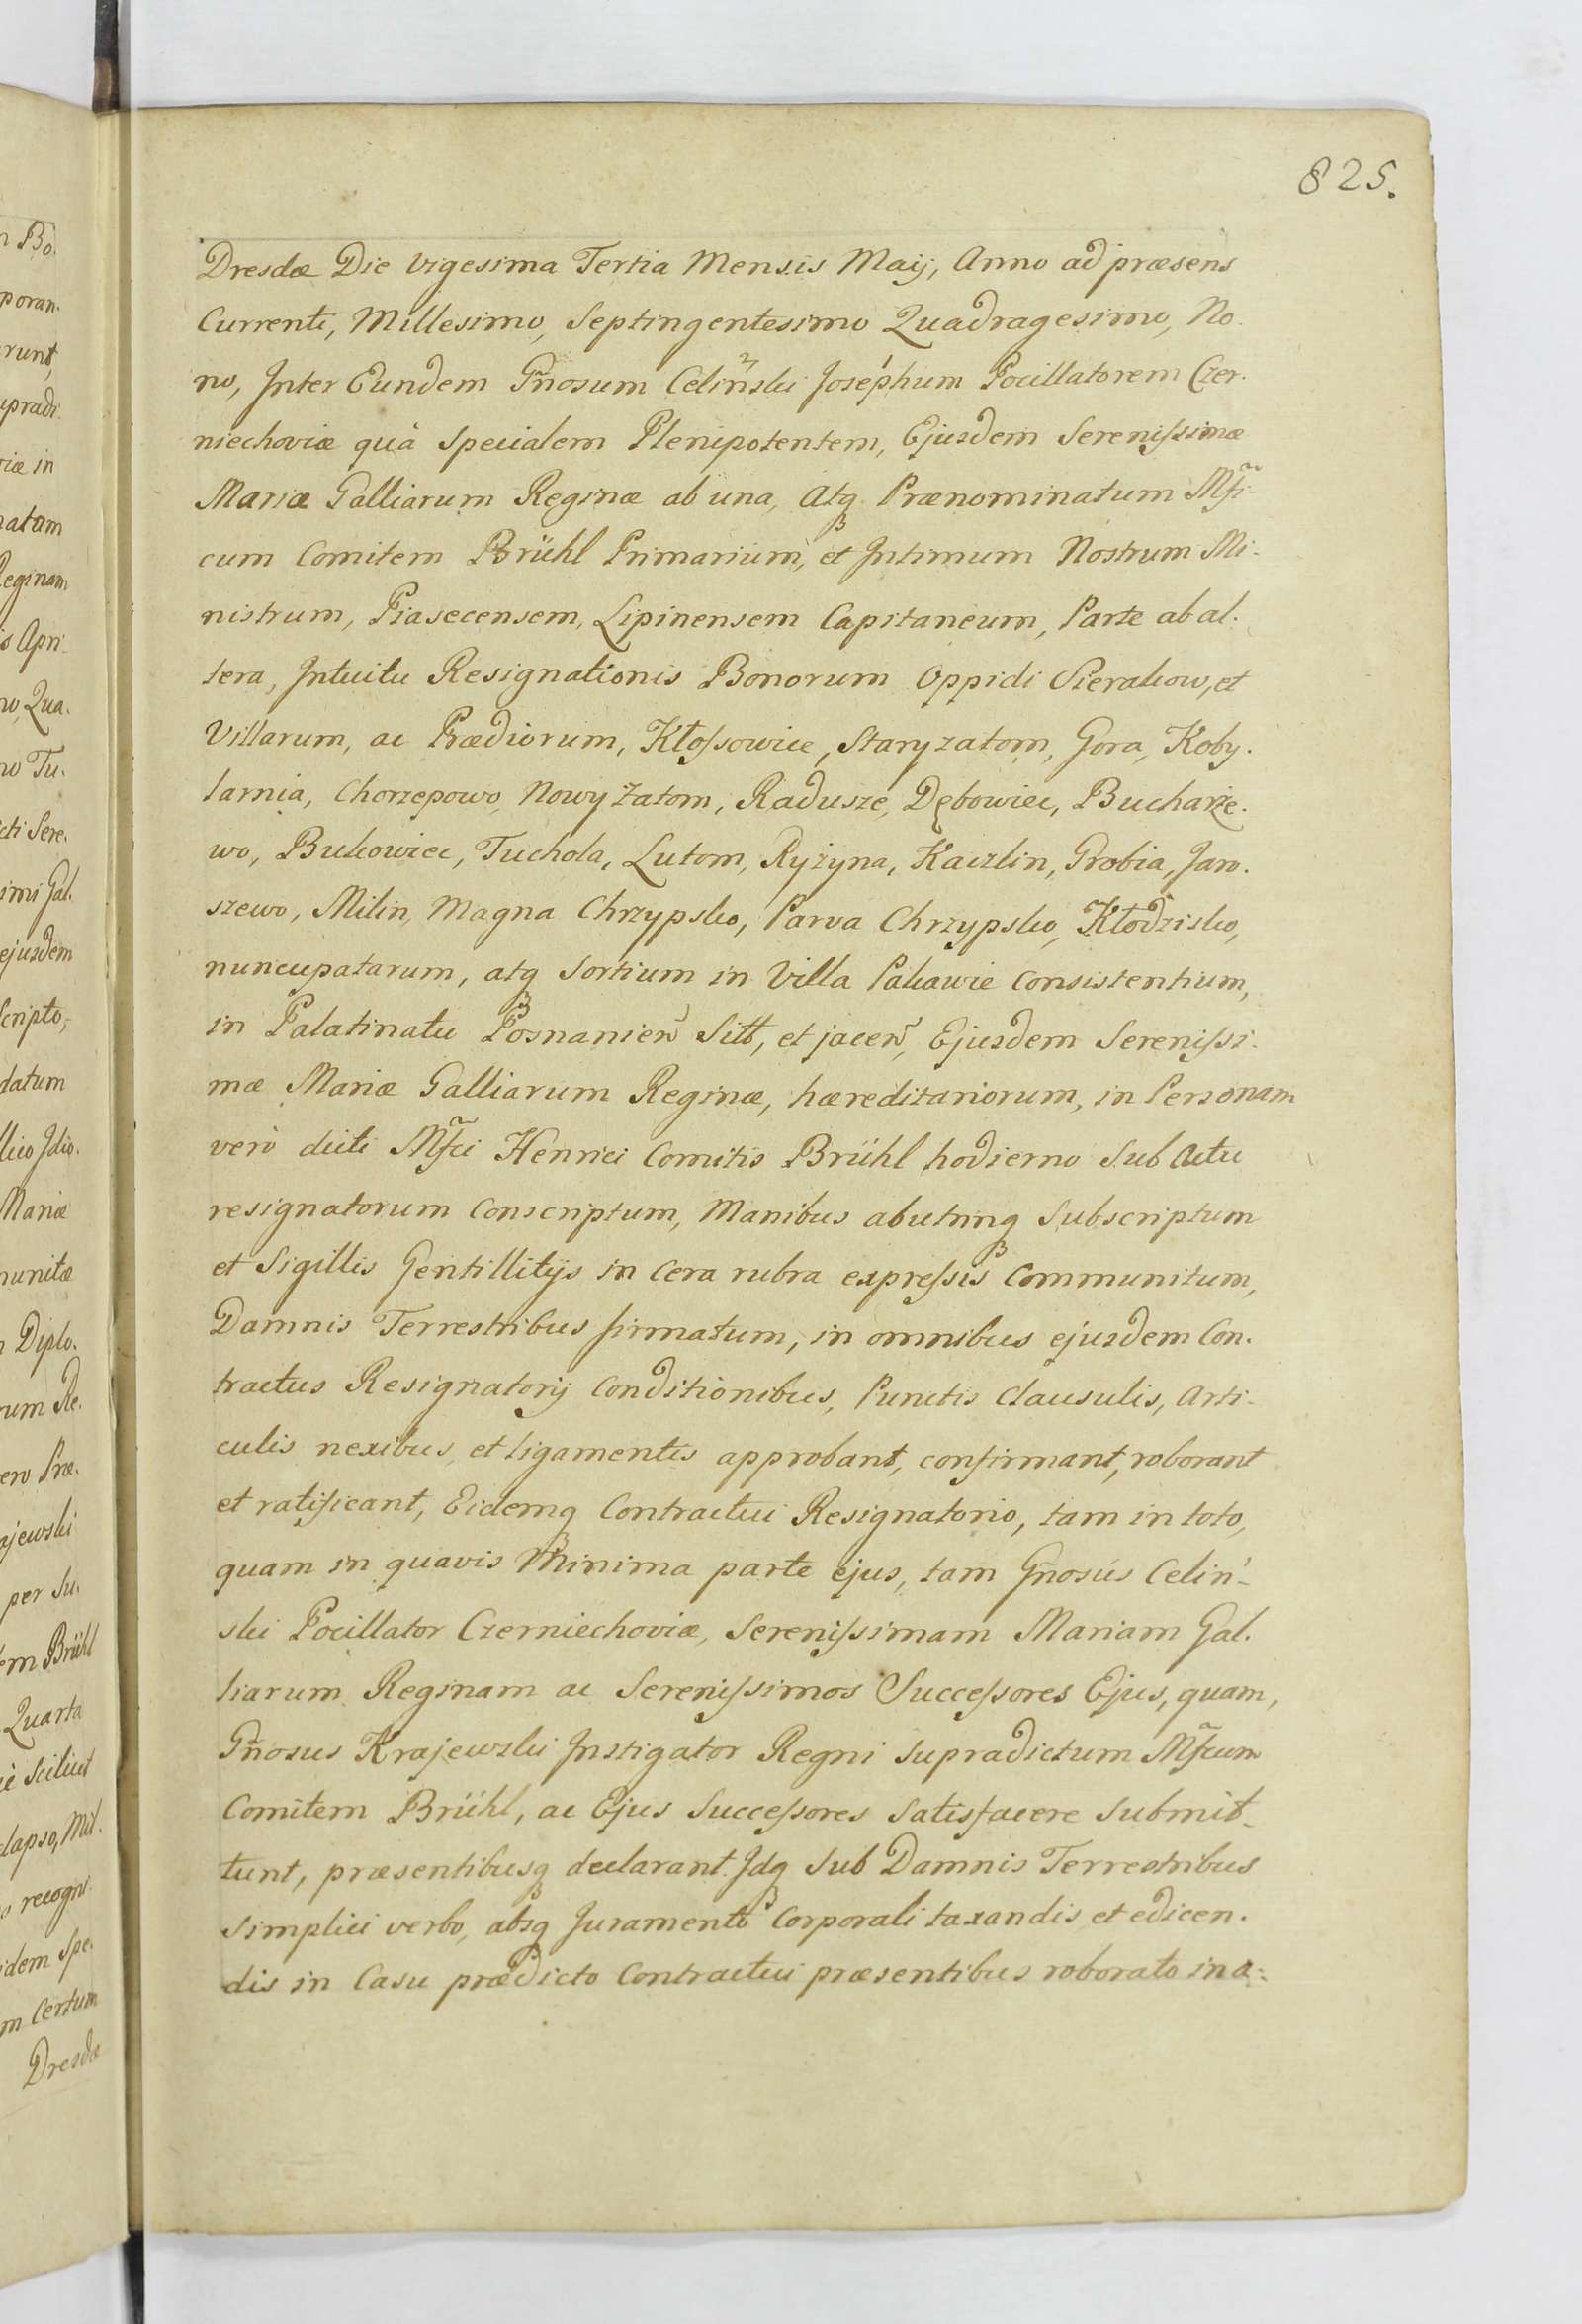 825.
Dresdæ Die vigesima Tertia Mensis Maij, Anno ad præsens
Currenti, Millesimo, Septingentesimo Quadragesimo, No-
no, Inter Eundem Gñosum Celiński Josephum Pocillatorem Czer-
niechoviæ quà specialem Plenipotentem, Ejusdem Serenissimæ
Mariæ Galliarum Reginæ ab una, Atq₃ Prænominatum Mf̃i-
cum Comitem Brühl Primarium, et Intimum Nostrum Mi-
nistrum, Piasecensem, Lipinensem Capitaneum, Parte ab al-
tera, Intuitu Resignationis Bonorum Oppidi Sierakow, et
Villarum, ac Prædiorum, Kłossowice, Staryzatom, Gora, Koby-
larnia, Chorzepowo, Nowy Zatom, Radusze, Dębowiec, Bucharze-
wo, Bukowiec, Tuchola, Lutom, Ryżyna, Kaczlin, Grobia, Jaro-
szewo, Milin, Magna Chrzypsko, Parva Chrzypsko, Kłodzisko,
nuncupatarum, atq₃ Sortium in Villa Pakawie consistentium,
in Palatinatu Posnanień Sitt, et jaceń, Ejusdem Serenissi-
mæ Mariæ Galliarum Reginæ, hæreditariorum, in Personam
verò dicti Mf̃ci Henrici Comitis Brühl hodierno Sub Actu
resignatorum Conscriptum, Manibus abutrinq₃ Subscriptum
et Sigillis Gentillitijs in Cera rubra expressis Communitum,
Damnis Terrestribus firmatum, in omnibus ejusdem Con-
tractus Resignatorij Conditionibus, Punctis Clausulis, Arti-
culis nexibus, et ligamentis approbant, confirmant, roborant
et ratificant, Eidemq₃ Contractui Resignatorio, tam in toto,
quam in quavis Minima parte ejus, tam Gñosus Celiń-
ski Pocillator Czerniechoviæ, Serenissimam Mariam Gal-
liarum Reginam ac Serenissimos Successores Ejus, quam,
Gñosus Krajewski Instigator Regni Supradictum Mf̃cum
Comitem Brühl, ac Ejus Successores Satisfacere Submit-
tunt, præsentibusq₃ declarant. Idq₃ Sub Damnis Terrestribus
simplici verbo, absq₃ Juramento Corporali taxandis, et edicen-
dis in Casu prædicto Contractui præsentibus roborato in a-